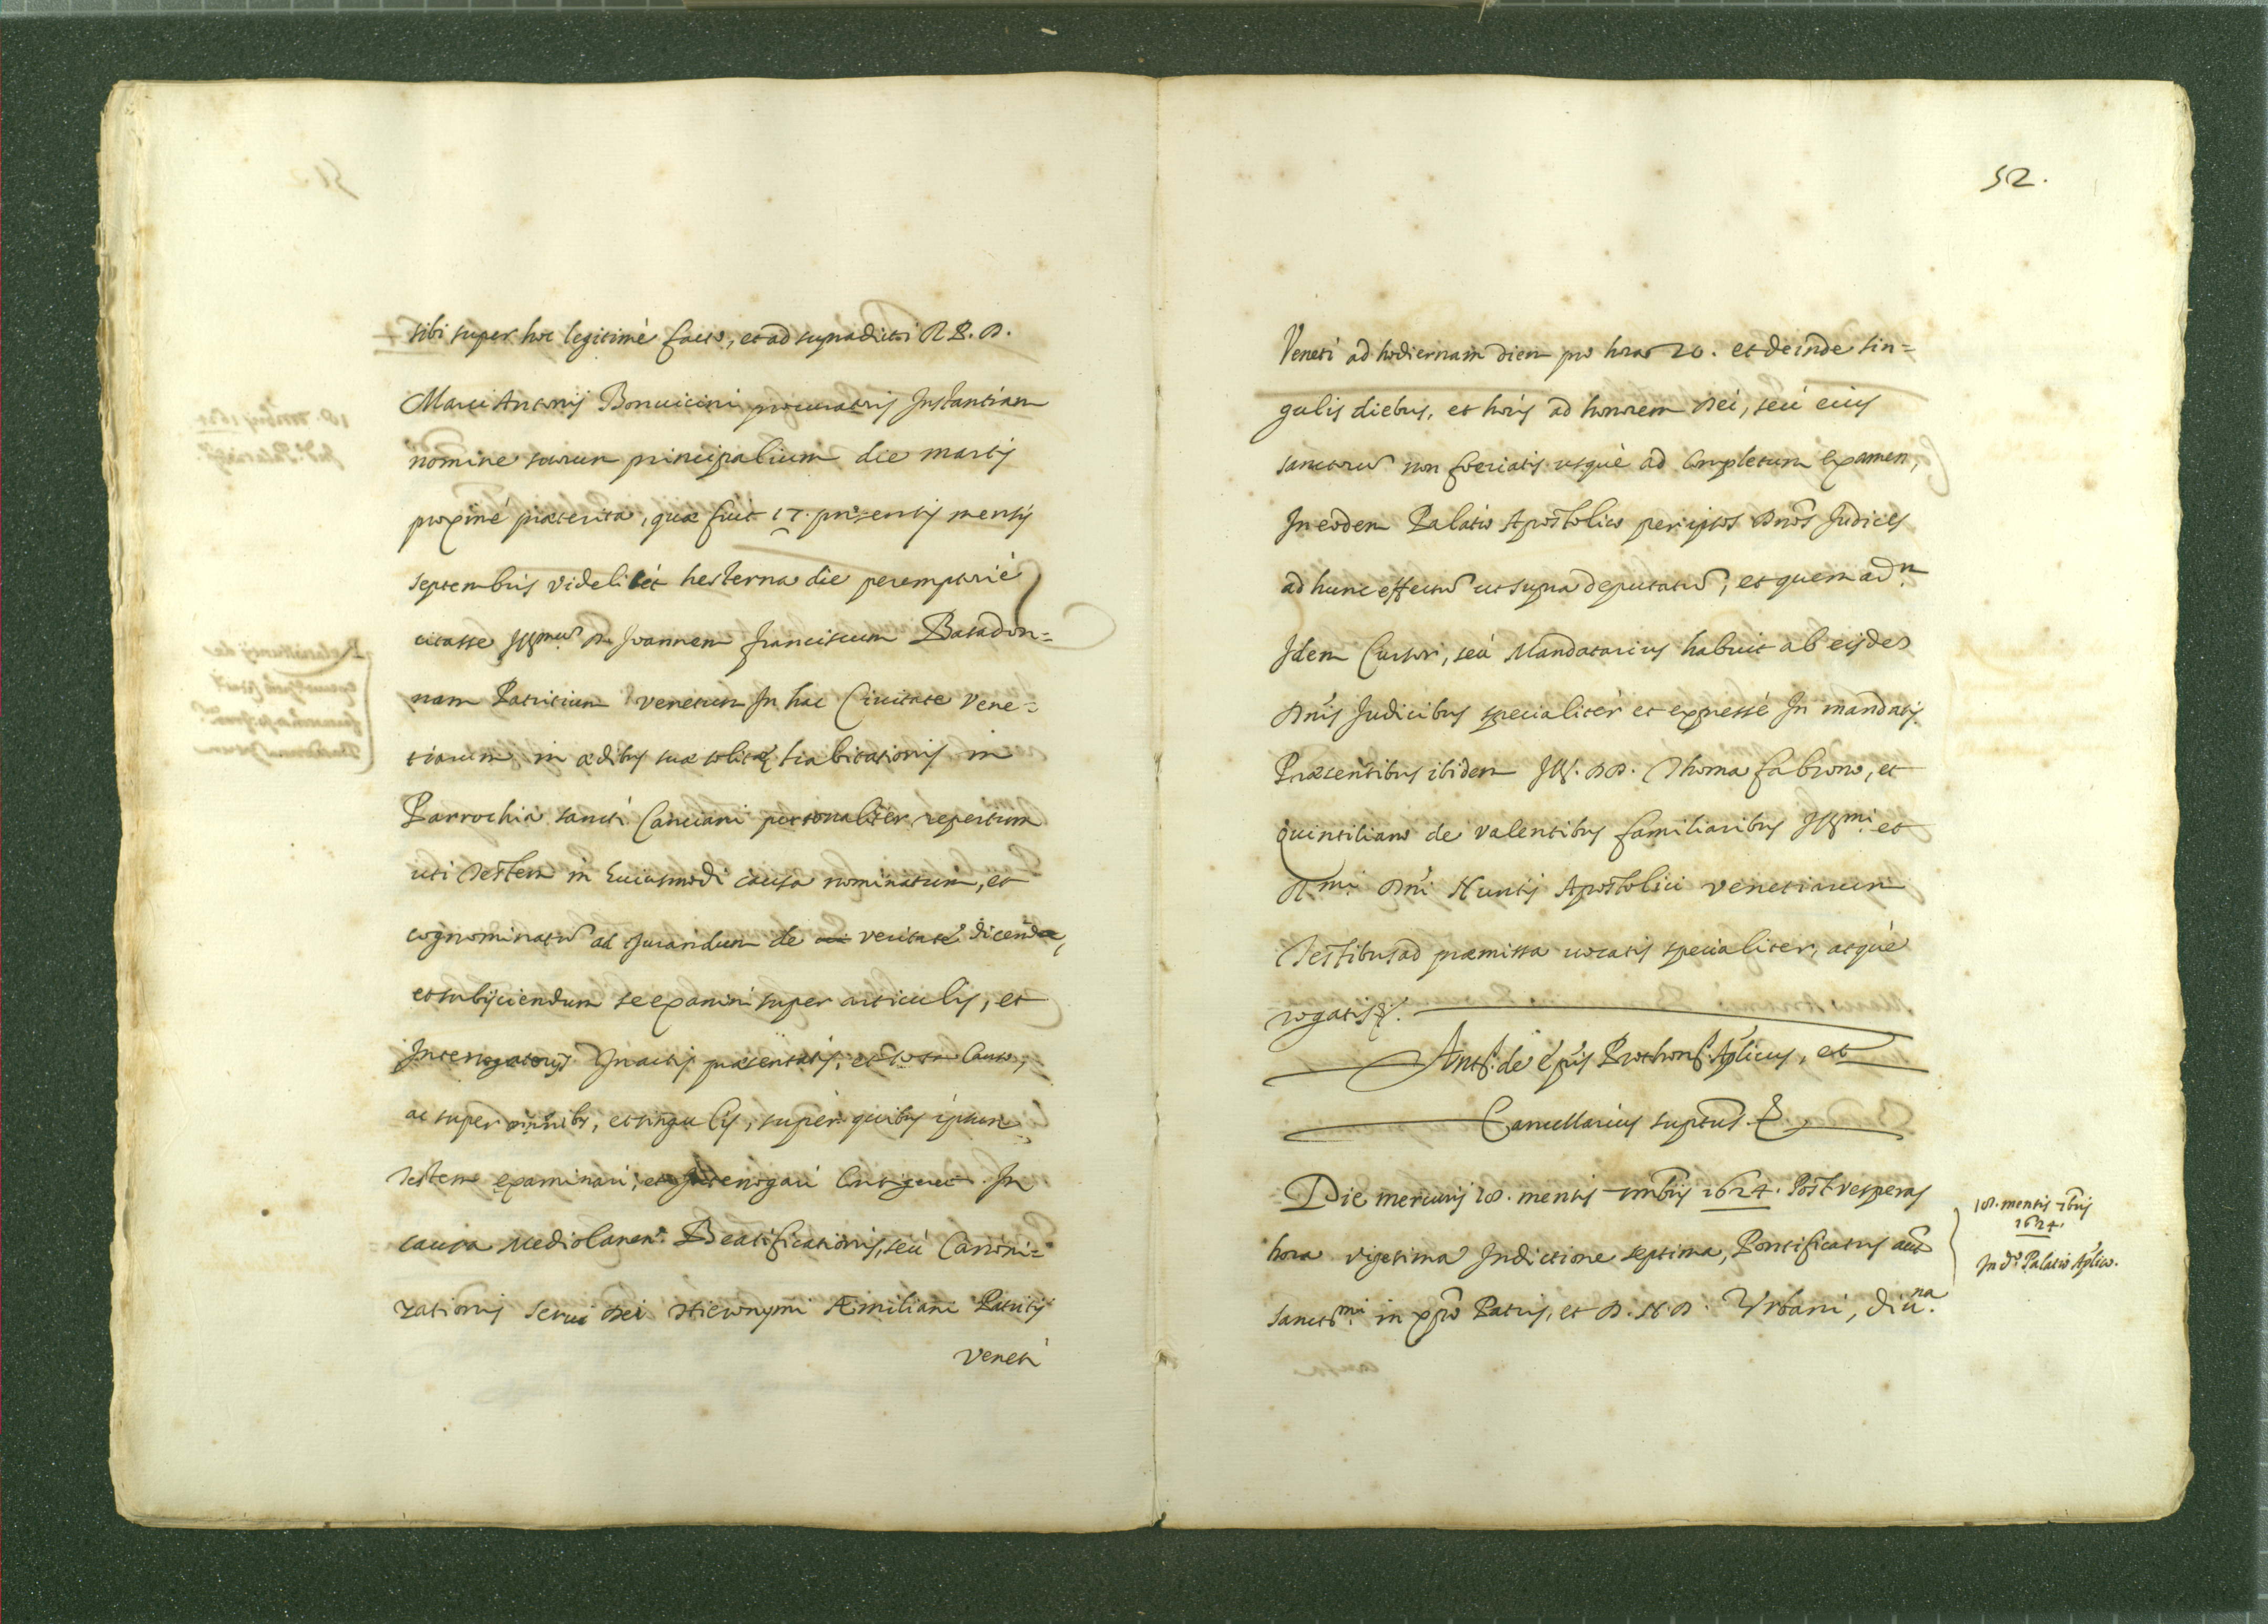 sibi super hoc legitimè facto, et ad supradicti R P. D.
Marci Antonij Bonuicini procuratoris Instantiam
nomine suorum principalium die martis
proximè præterita, quæ fuit 17. præsentis mensis
septembris videlicèt hesterna die peremptoriè
citasse Illmũ D. Joannem franciscum Basadon=
nam Patritium venetum In hac Ciuitate Vene=
tiarum in ædibus suæ solitæ habitationis in
Parrochia sancti Canciani personaliter repertum
uti Testem in huiusmodi causa nominatum, et
cognominatũ ad Jurandum de veritate dicenda,
et subijciendum se examini super articulis, et
Interrogatorijs In actis præsentatis, et
ac super omnibs, et singulis, super quibus ipsum
Testem examinari, et Interrogari Contigerit In
causa Mediolanen. Beatificationis, seù Canoni=
zationis serui Dei Hieronymi Æmiliani Patritij
Veneti
52.
Veneti ad hodiernam diem pro hora 20. et deinde sin=
gulis diebus, et horis ad honorem Dei, seù eius
sanctorũ non foeriatis usquè ad completum examen,
In eodem Palatio Apostolico per ipsos Dnõs Judices
ad hunc effectũ ut supra deputatũ, et quem adm
Idem Cursor, seù Mandatarius habuit ab eisdẽ
Dnis Judicibus specialitèr et expressè In mandatis
Præsentibus ibidem Ill. DD. Thoma fabrono, et
quintiliano de Valentibus familiaribus Illmi. et
Rmi. Dni Nuntij Apostolici Venetiarum
Testibus ad præmissa vocatis specialiter, atquè
rogatis &.
Ant. de Epis Prothon. Aplicus, et
Cancellarius suptus &
Die mercurij 18. mensis 7mbris 1624. Post vesperas
hora vigesima Indictione septima, Pontificatus aũt
sanctmi. in xpo Patris, et D. N. D. Vrbani, diuna.
18. mensis 7bris
1624.
In do. Palatio Aplico.